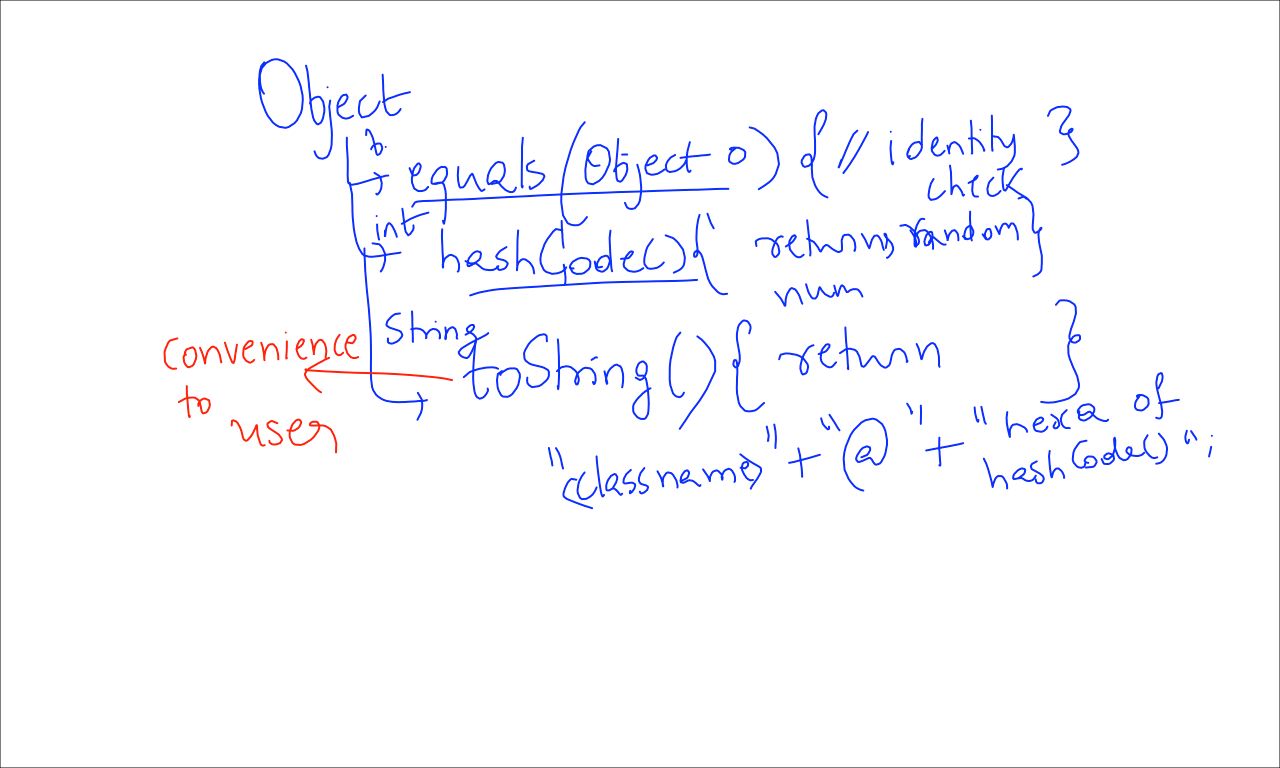 Object
b.
equals (Object o) { // identity }
check
int
hashCode() { returns random }
num
String
toString() { return }
"<classname>" + "@" + "hexa of
hashCode()";
convenience
to
user